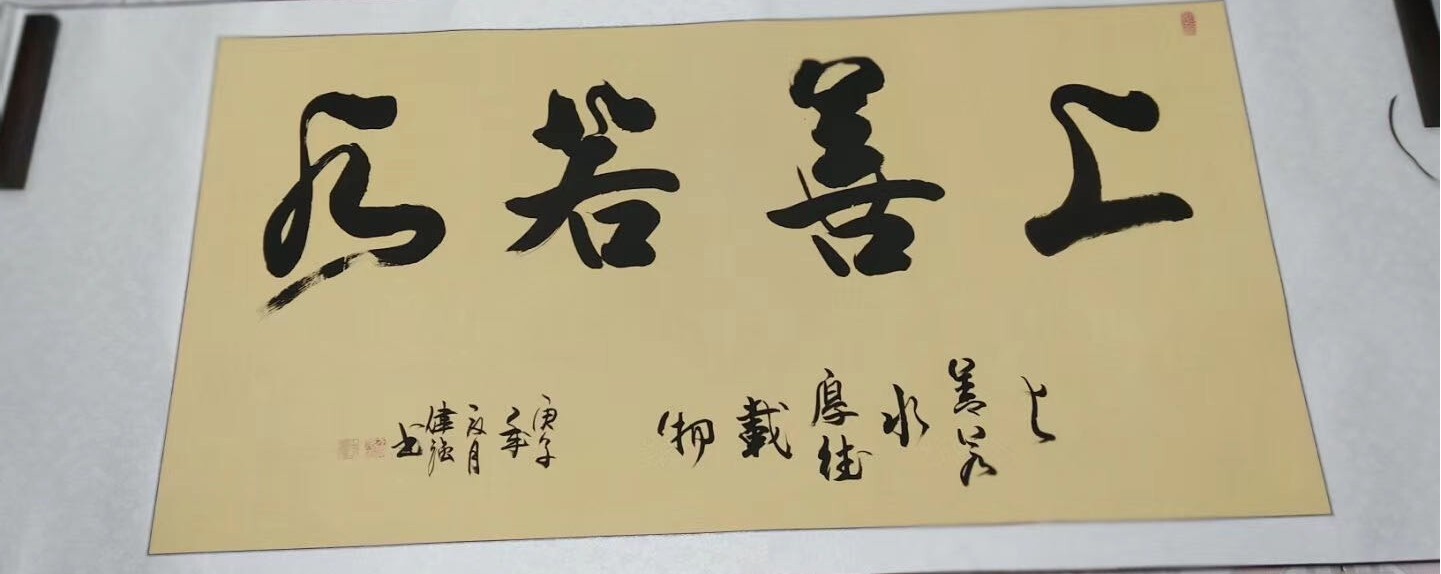 上善若水
上善若水厚德载物
庚子年
夏月
伟强书